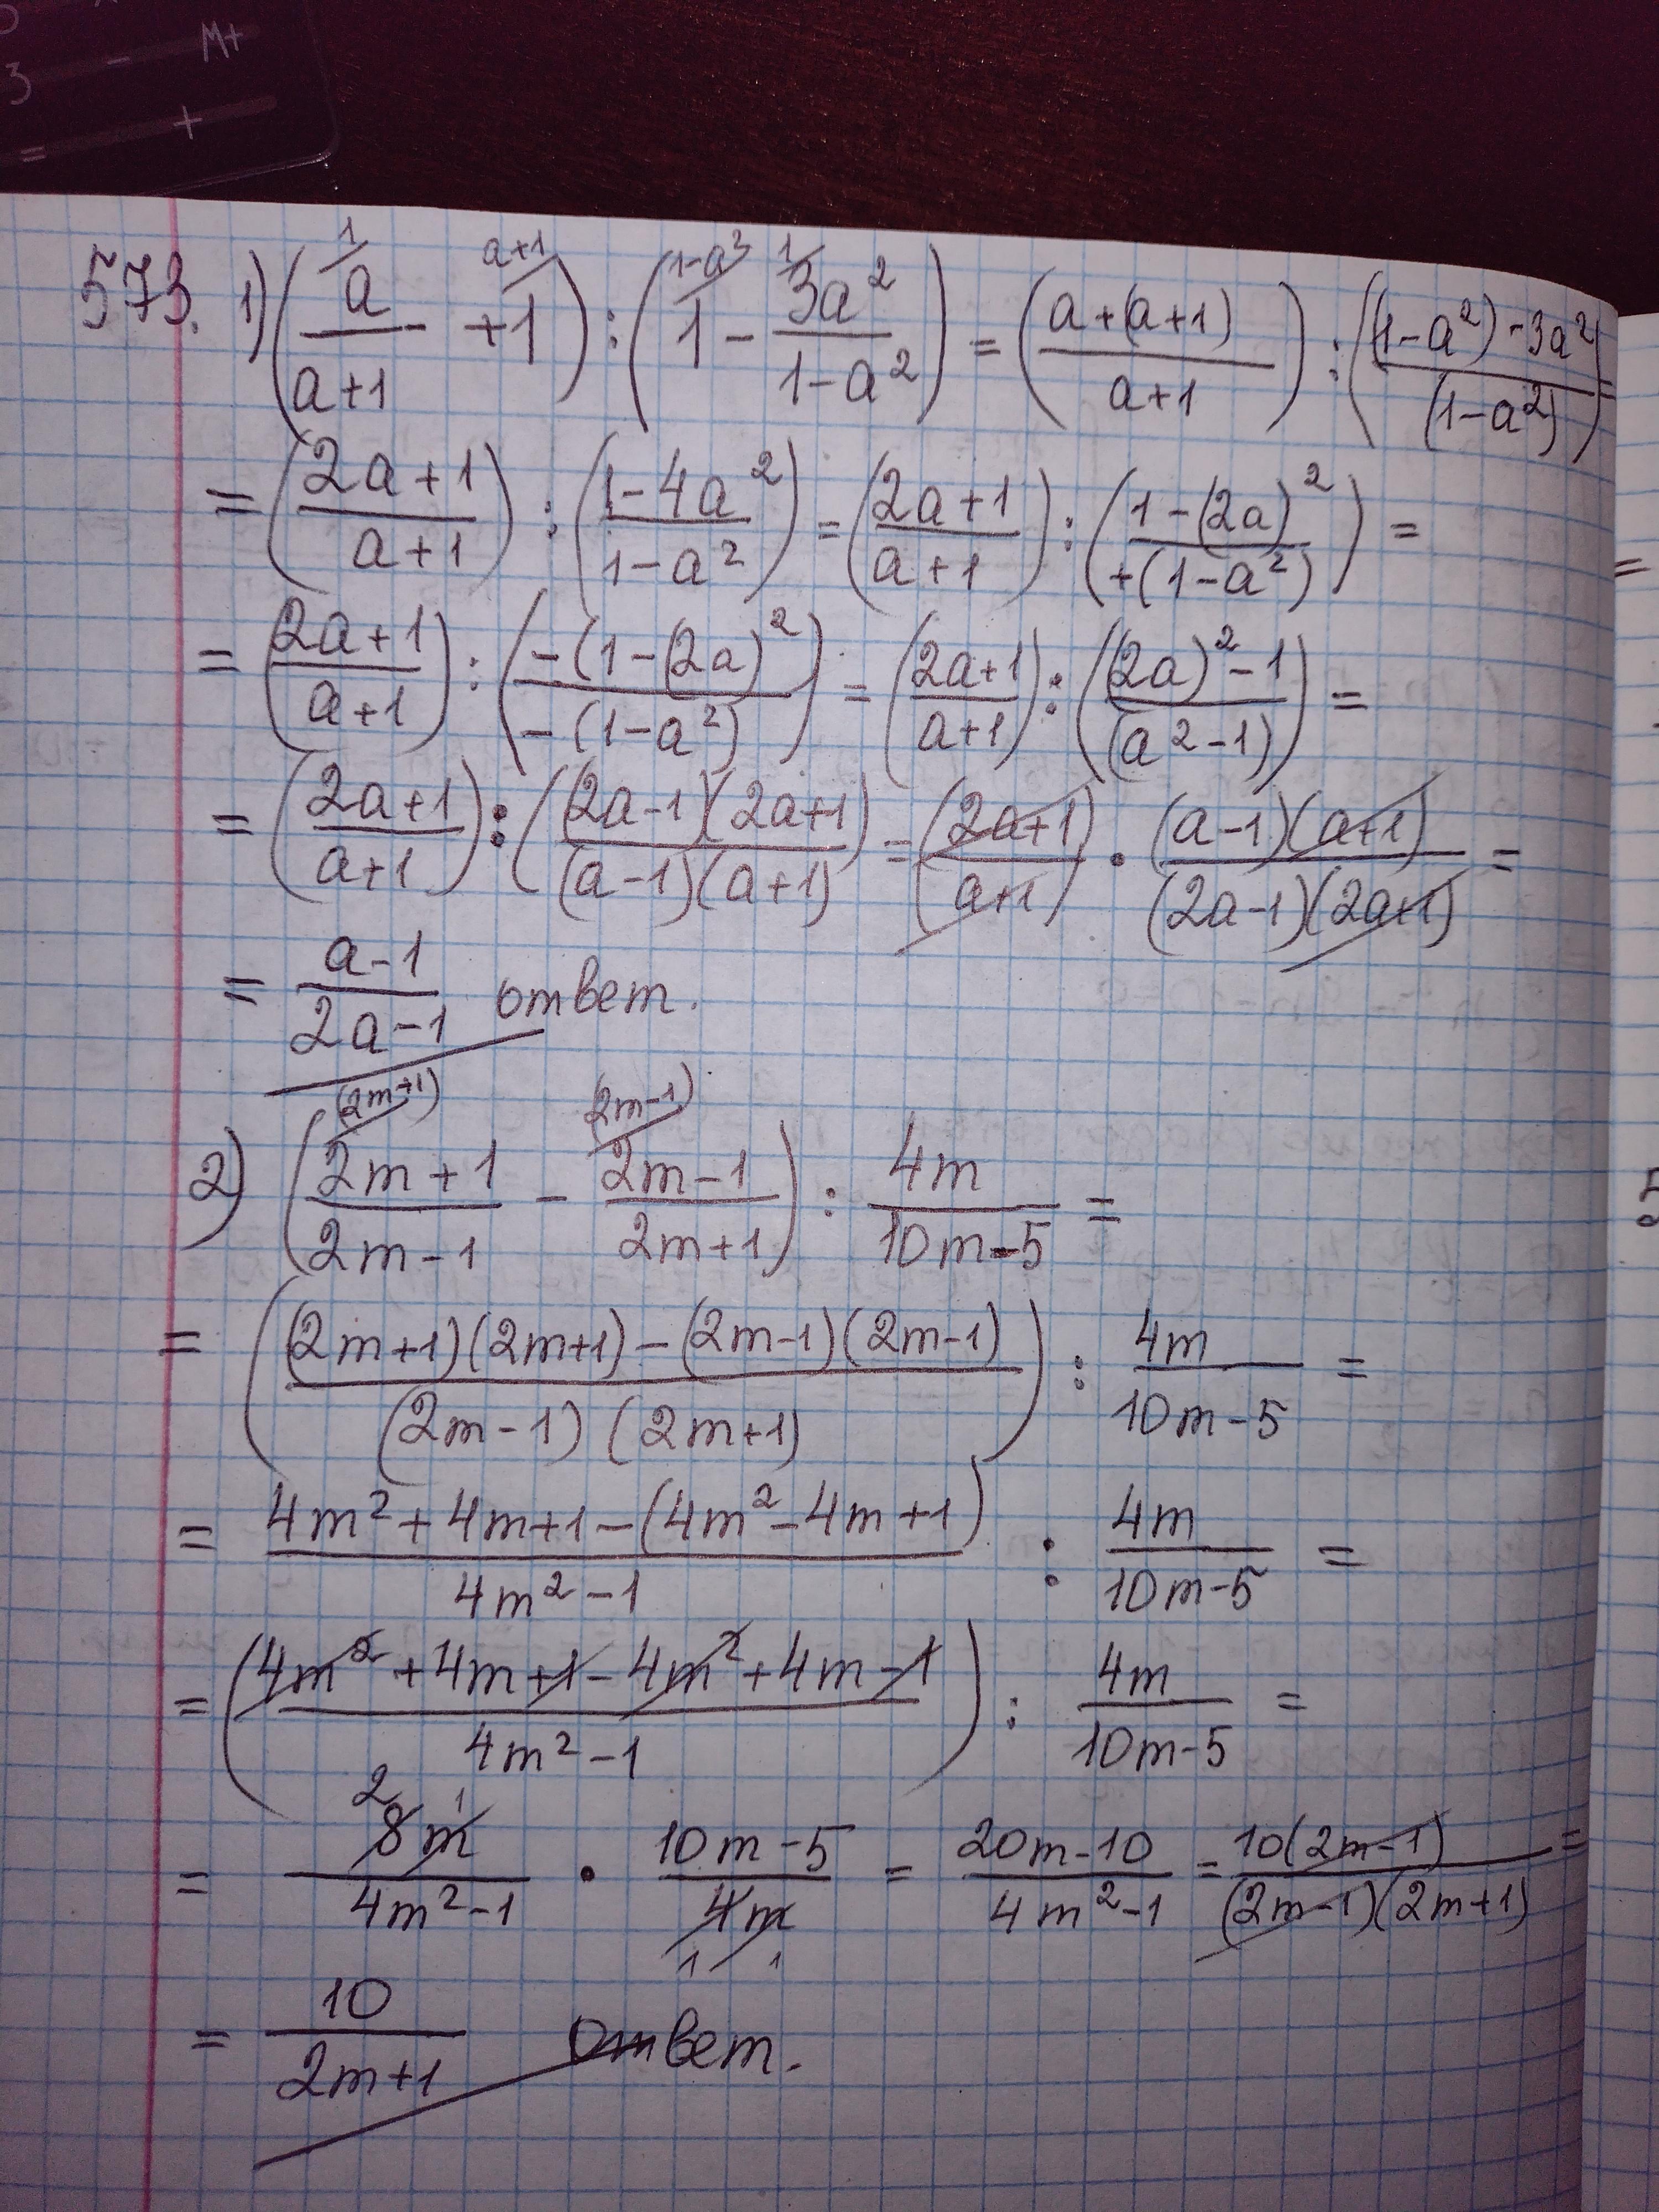 M+
3 -
= +
573. 1) (a/(a+1) + 1) : (1 - 3a²/(1-a²)) = ((a+(a+1))/(a+1)) : (((1-a²)-3a²)/(1-a²)) =
= ((2a+1)/(a+1)) : ((1-4a²)/(1-a²)) = ((2a+1)/(a+1)) : ((1-(2a)²)/(+(1-a²))) =
= ((2a+1)/(a+1)) : ((-(1-(2a)²)/(-(1-a²))) = ((2a+1)/(a+1)) : (((2a)²-1)/(a²-1)) =
= ((2a+1)/(a+1)) : ((2a-1)(2a+1)/((a-1)(a+1))) = ((2a+1)/(a+1)) · (a-1)(a+1)/((2a-1)(2a+1)) =
= (a-1)/(2a-1) ответ.
(2m+1) (2m-1)
2) ((2m+1)/(2m-1) - (2m-1)/(2m+1)) : 4m/(10m-5) =
= (((2m+1)(2m+1)-(2m-1)(2m-1))/((2m-1)(2m+1))) : 4m/(10m-5) =
= (4m²+4m+1-(4m²-4m+1))/(4m²-1) : 4m/(10m-5) =
= ((4m²+4m+1-4m²+4m-1)/(4m²-1)) : 4m/(10m-5) =
2 1
= 8m/(4m²-1) · (10m-5)/4m = (20m-10)/(4m²-1) = 10(2m-1)/((2m-1)(2m+1)) =
1 1
= 10/(2m+1) Ответ.